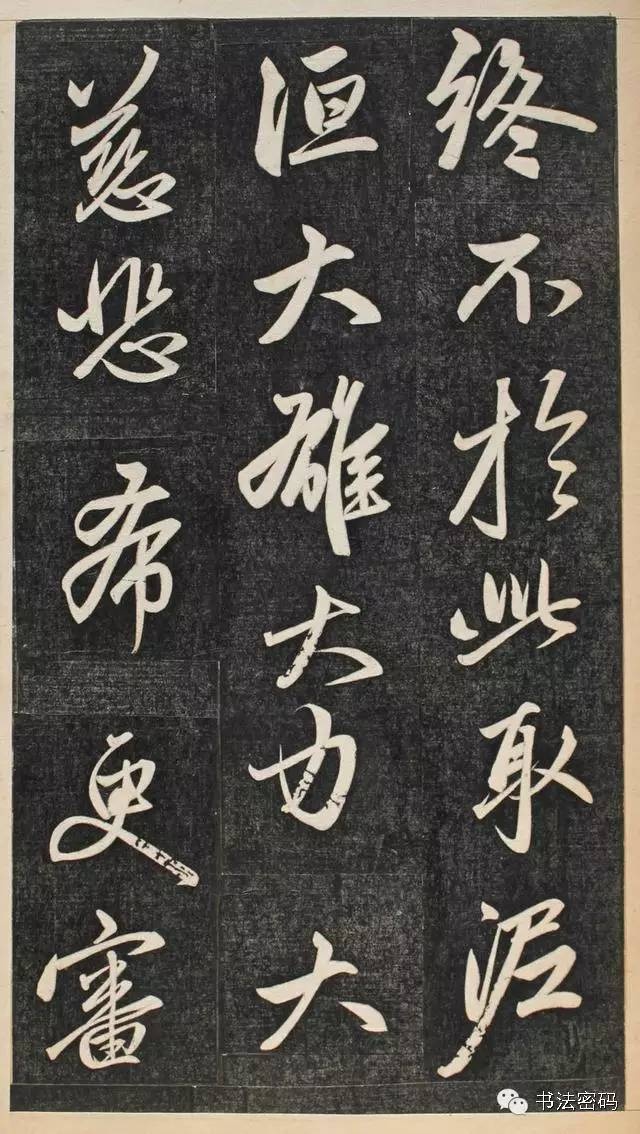 終不於此取泥
洹大雄大力大
慈悲希更審
书法密码